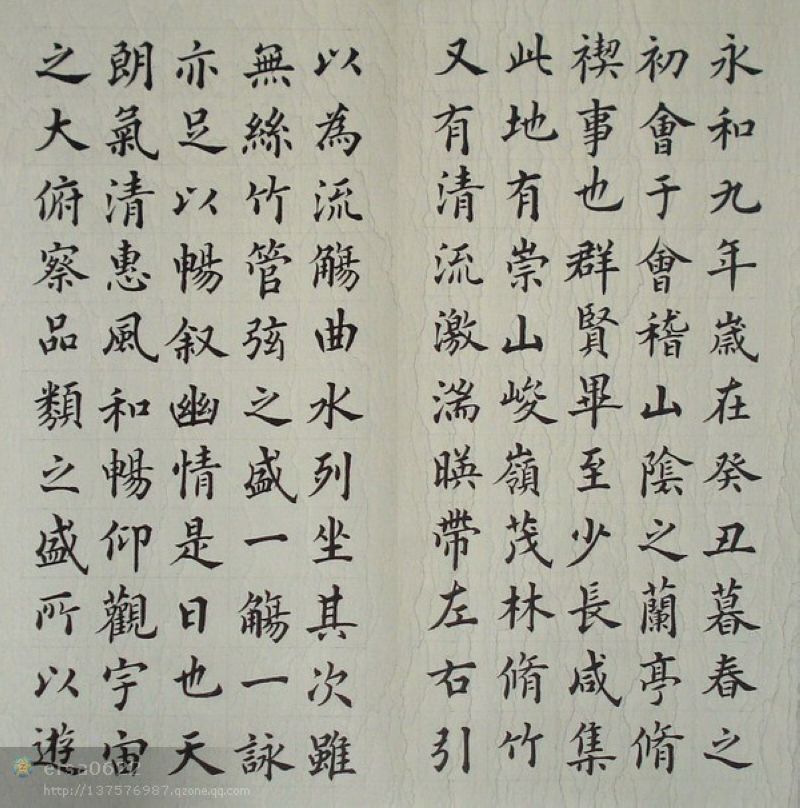 永和九年歲在癸丑暮春之
初會于會稽山陰之蘭亭脩
禊事也群賢畢至少長咸集
此地有崇山峻嶺茂林脩竹
又有清流激湍暎帶左右引
以為流觴曲水列坐其次雖
無絲竹管弦之盛一觴一詠
亦足以暢叙幽情是日也天
朗氣清惠風和暢仰觀宇宙
之大俯察品類之盛所以遊
elsa0622
http://137576987.qzone.qq.com